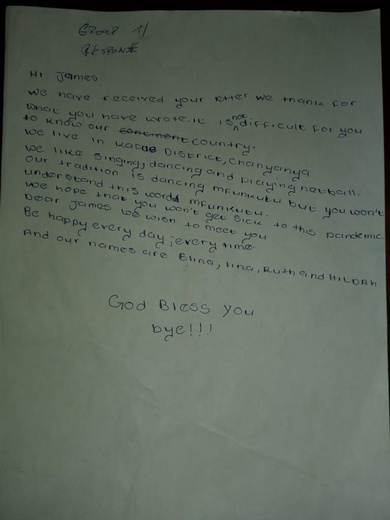 GROUP 1/
RESPONSE
HI James
We have received your letter we thank for
what you have wrote.it is not difficult for you
to know our continent country.
We live in Kafue District, Chanyanya
We like singing, dancing and playing netball.
Our tradition is dancing mfunkutu but you won't
understand this word mfunkutu.
We hope that you won't get sick to this pandemic
Dear James we wish to meet you
Be happy every day, every time
And our names are Elina, tina, Ruth and HILDAH
God Bless you
bye!!!